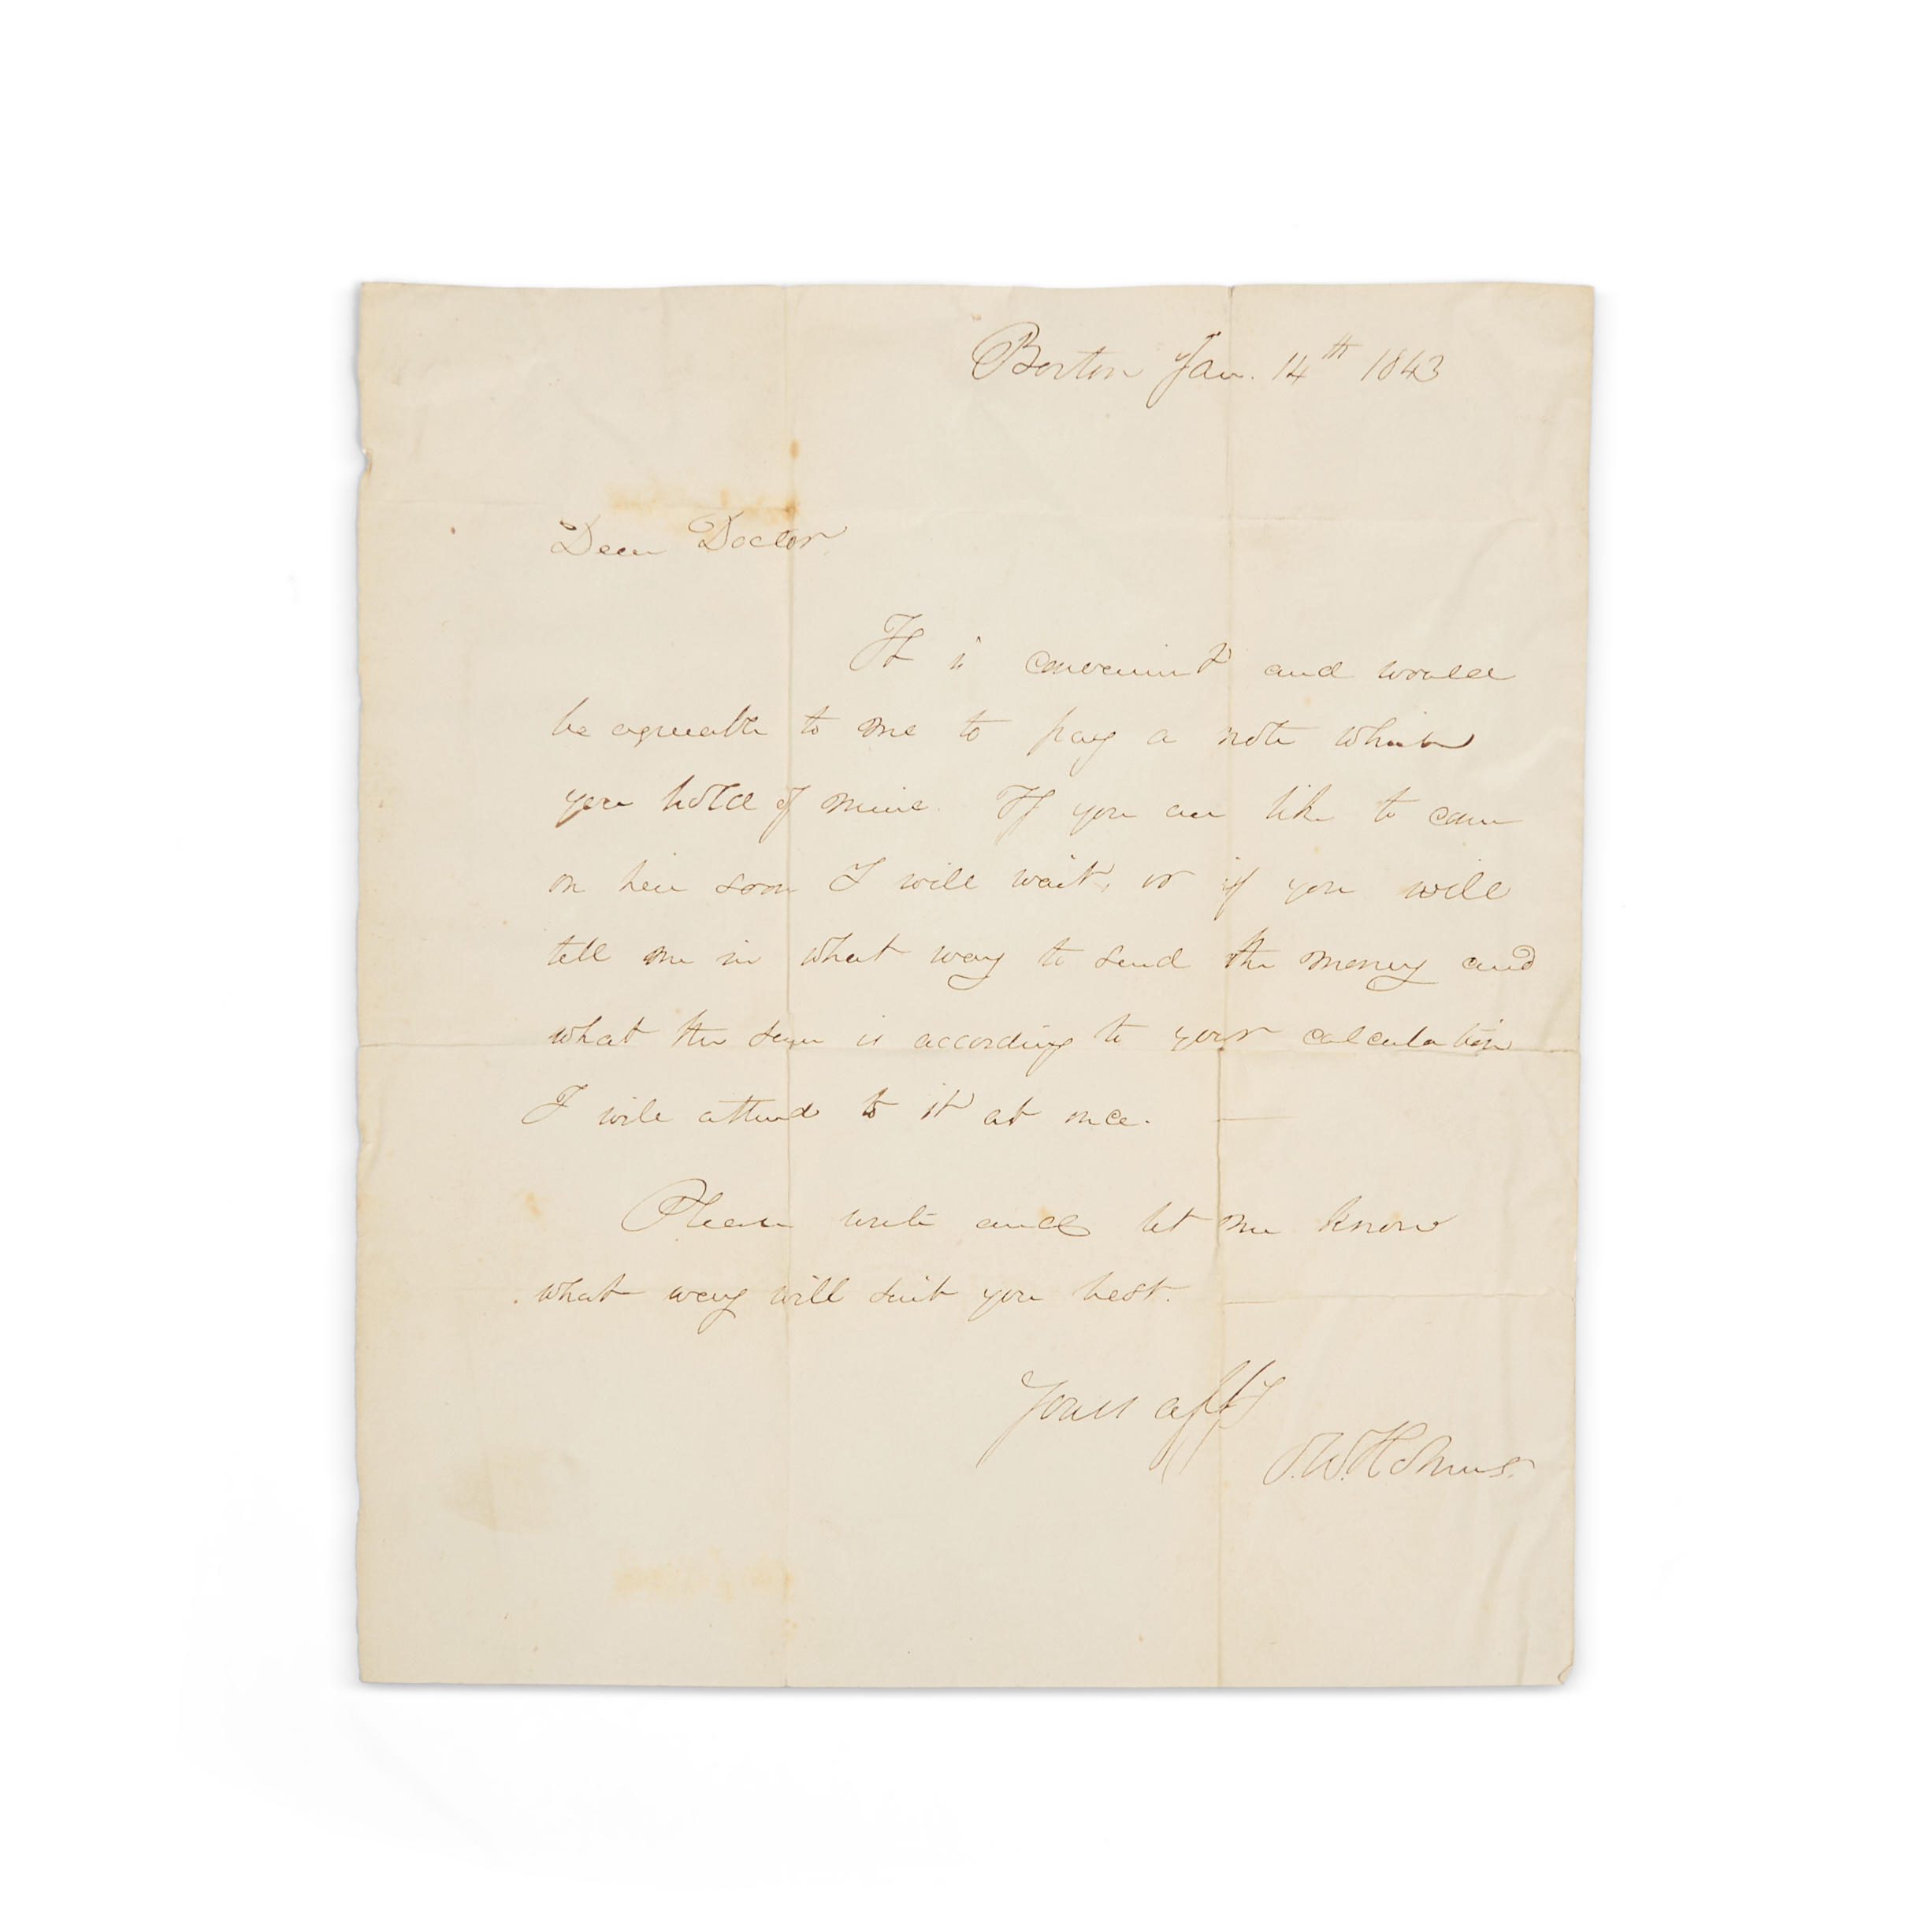 Boston Jan. 14th 1843
Dear Doctor
It is convenient and would
be agreeable to me to pay a note which
you hold of mine. If you are like to come
on here soon I will wait, or if you will
tell me in what way to send the money and
what the sum is according to your calculation
I will attend to it at once. —
Please write and let me know
what way will suit you best. —
Yours affly
O. W. Holmes.